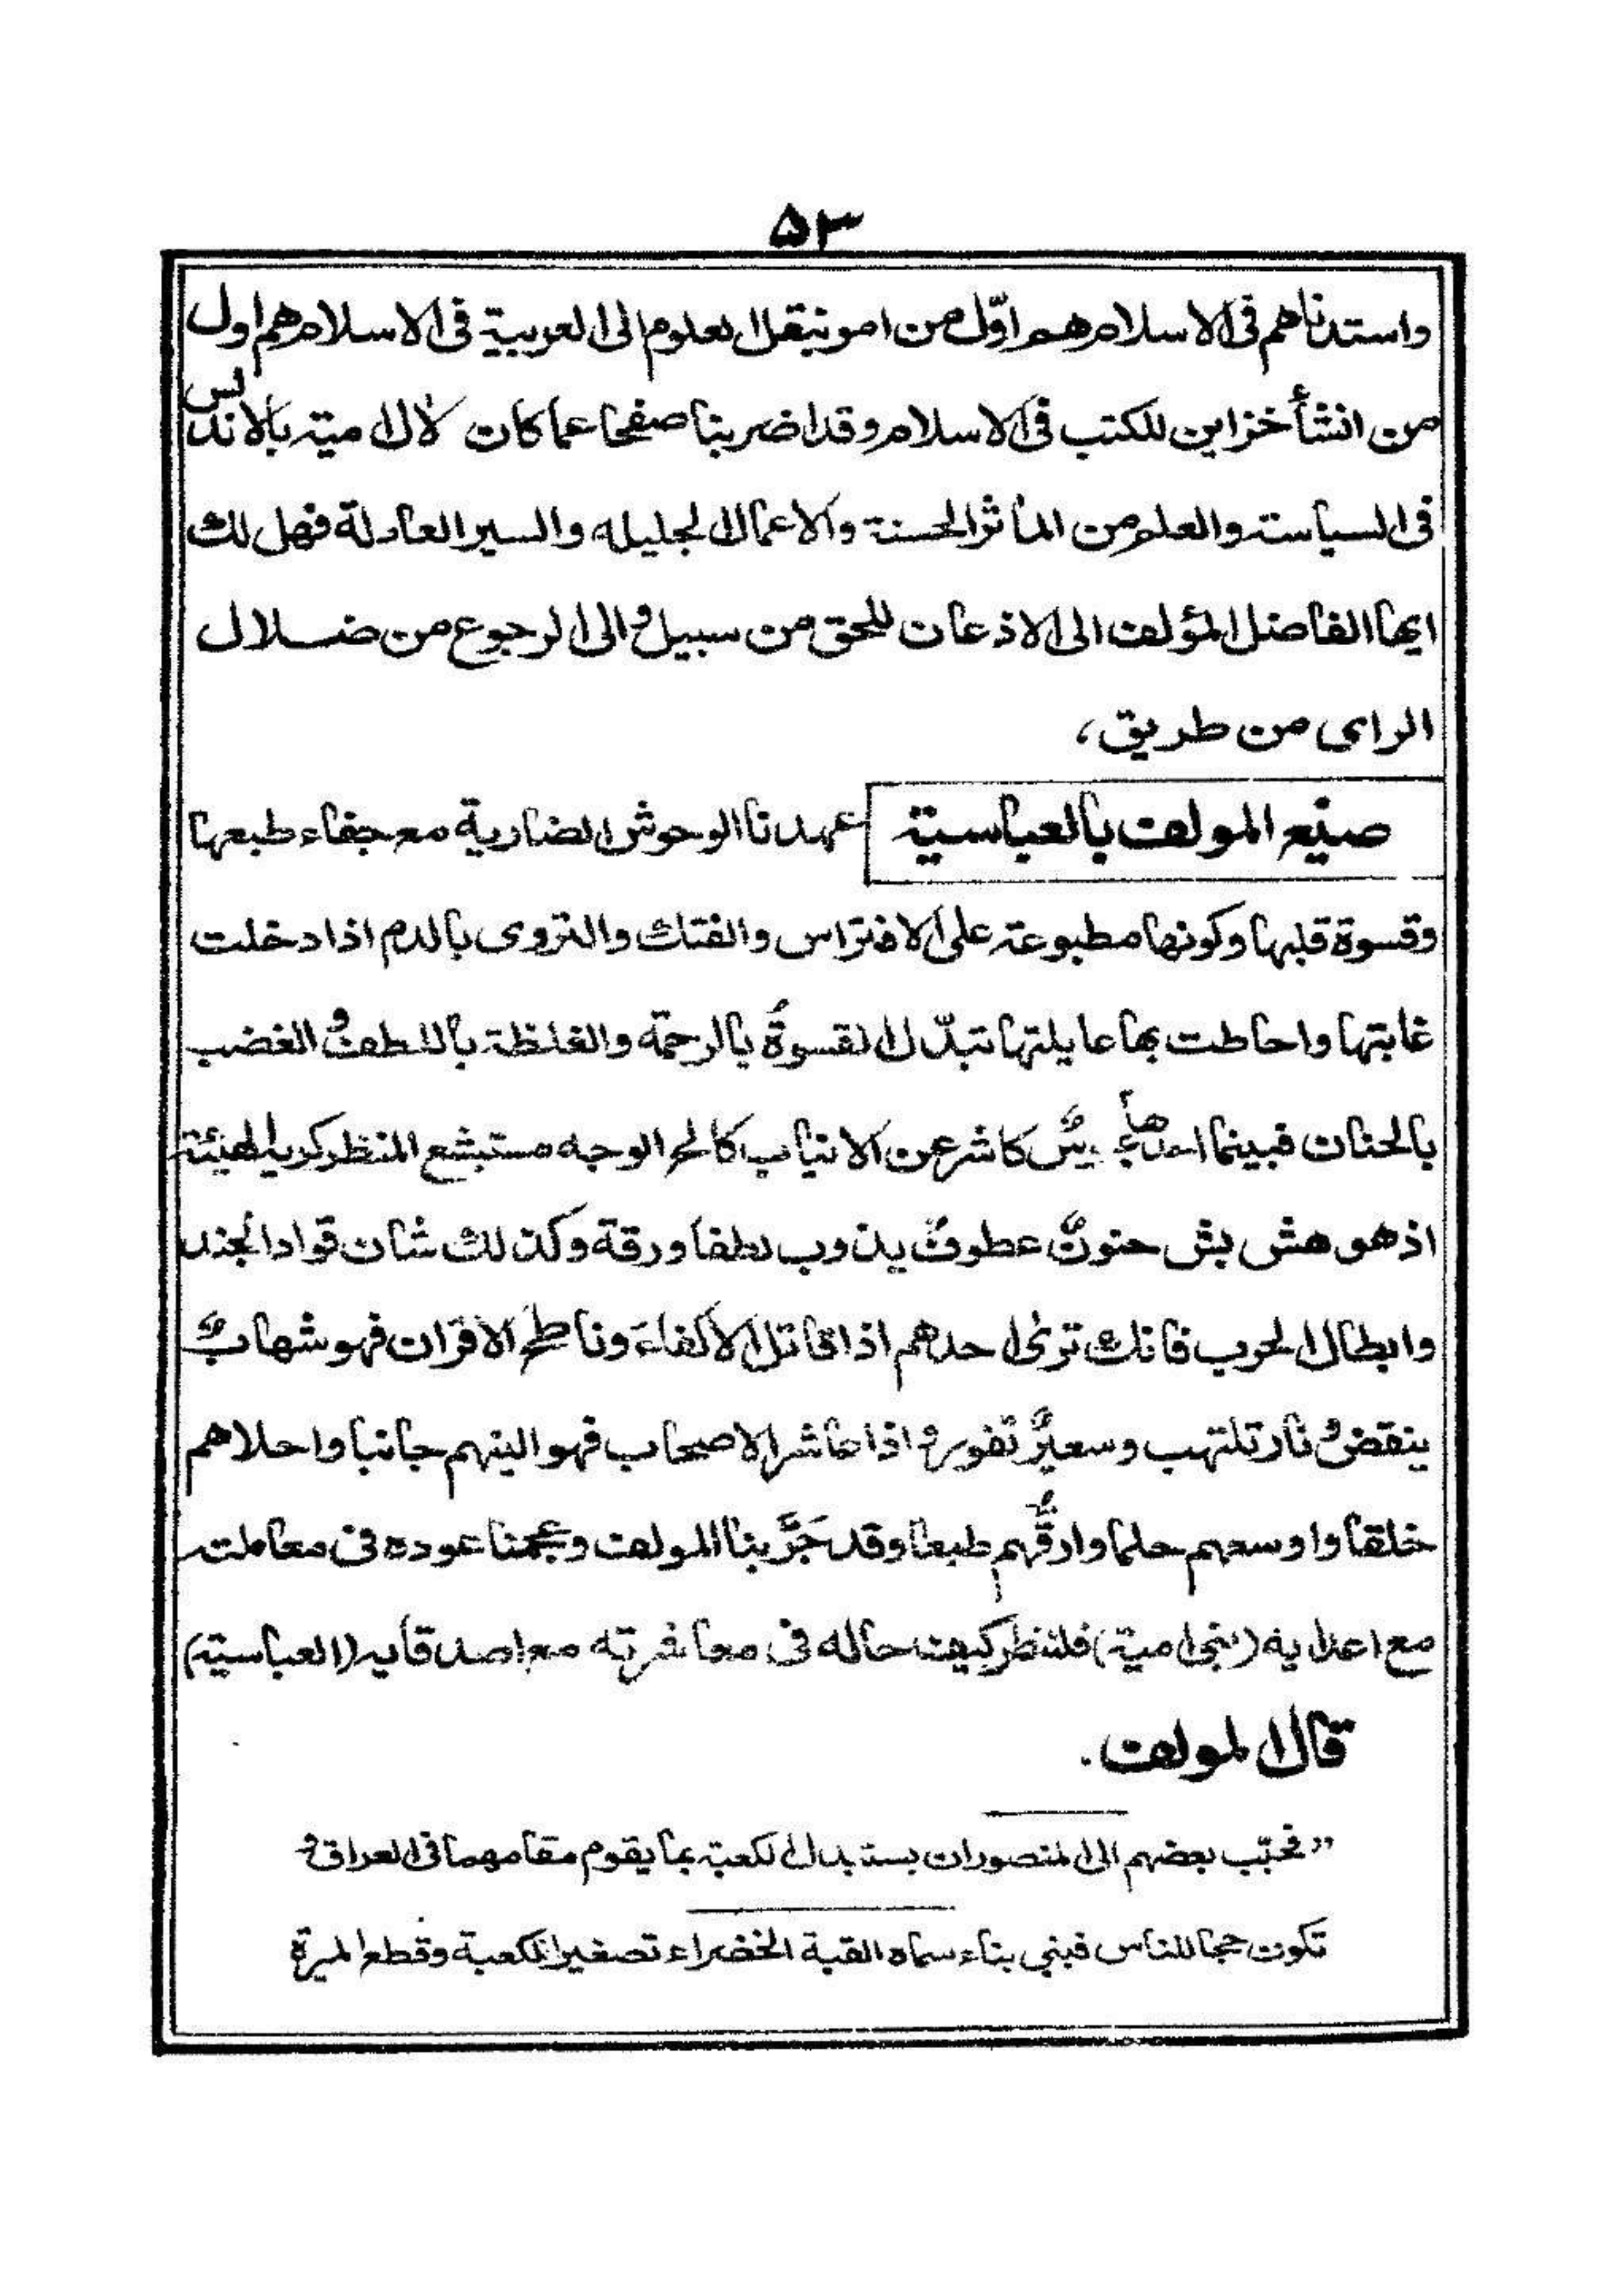 ۵۳
واستدناهم فى الاسلام هم اوّل من امر بنقل العلوم الى العربية فى الاسلام هم اول
من انشأ خزاين للكتب فى الاسلام وقد اضربنا صفحا عما كان لآل امية بالاندلس
فى السياسة والعلم من المأثر الحسنة والاعمال الجليله والسير العادلة فهل لك
ايها الفاضل المؤلف الى الاذعان للحق من سبيل و الى الرجوع من ضلال
الراى من طريق،
صنيع المولف بالعباسية عهدنا الوحوش الضارية مع جفاء طبعها
وقسوة قلبها وكونها مطبوعة على الافتراس والفتك والتروى بالدم اذا دخلت
غابتها واحاطت بها عايلتها تبدّل القسوةُ بالرحمة والغلظة باللطف و الغضب
بالحنان فبينما احدها كاشر عن الانياب كالح الوجه مستبشع المنظر كريه الهيئة
اذ هو هش بش حنونٌ عطوفٌ يذوب لطفا ورقة وكذلك شان قواد الجند
وابطال الحرب فانك ترىٰ احدهم اذا قاتل الاكفاءَ وناطح الاقران فهو شهابٌ
ينقض و نار تلتهب وسعيرٌ تفور و اذا عاشر الاصحاب فهو الينهم جانبا واحلاهم
خلقا واوسعهم حلما وارقُّهم طبعا وقد جَرَّبنا المولف وعجمنا عوده فى معاملته
مع اعدايه (بنى امية) فلننظر كيف حاله فى معاشرته مع اصدقايه (العباسية)
قال المولف.
”فحبّب بعضهم الى المنصور ان يستبدل الكعبة بما يقوم مقامها فى العراق و
تكون حجا للناس فبنى بناء سماه القبة الخضراء تصغيرا للكعبة وقطع الميرة